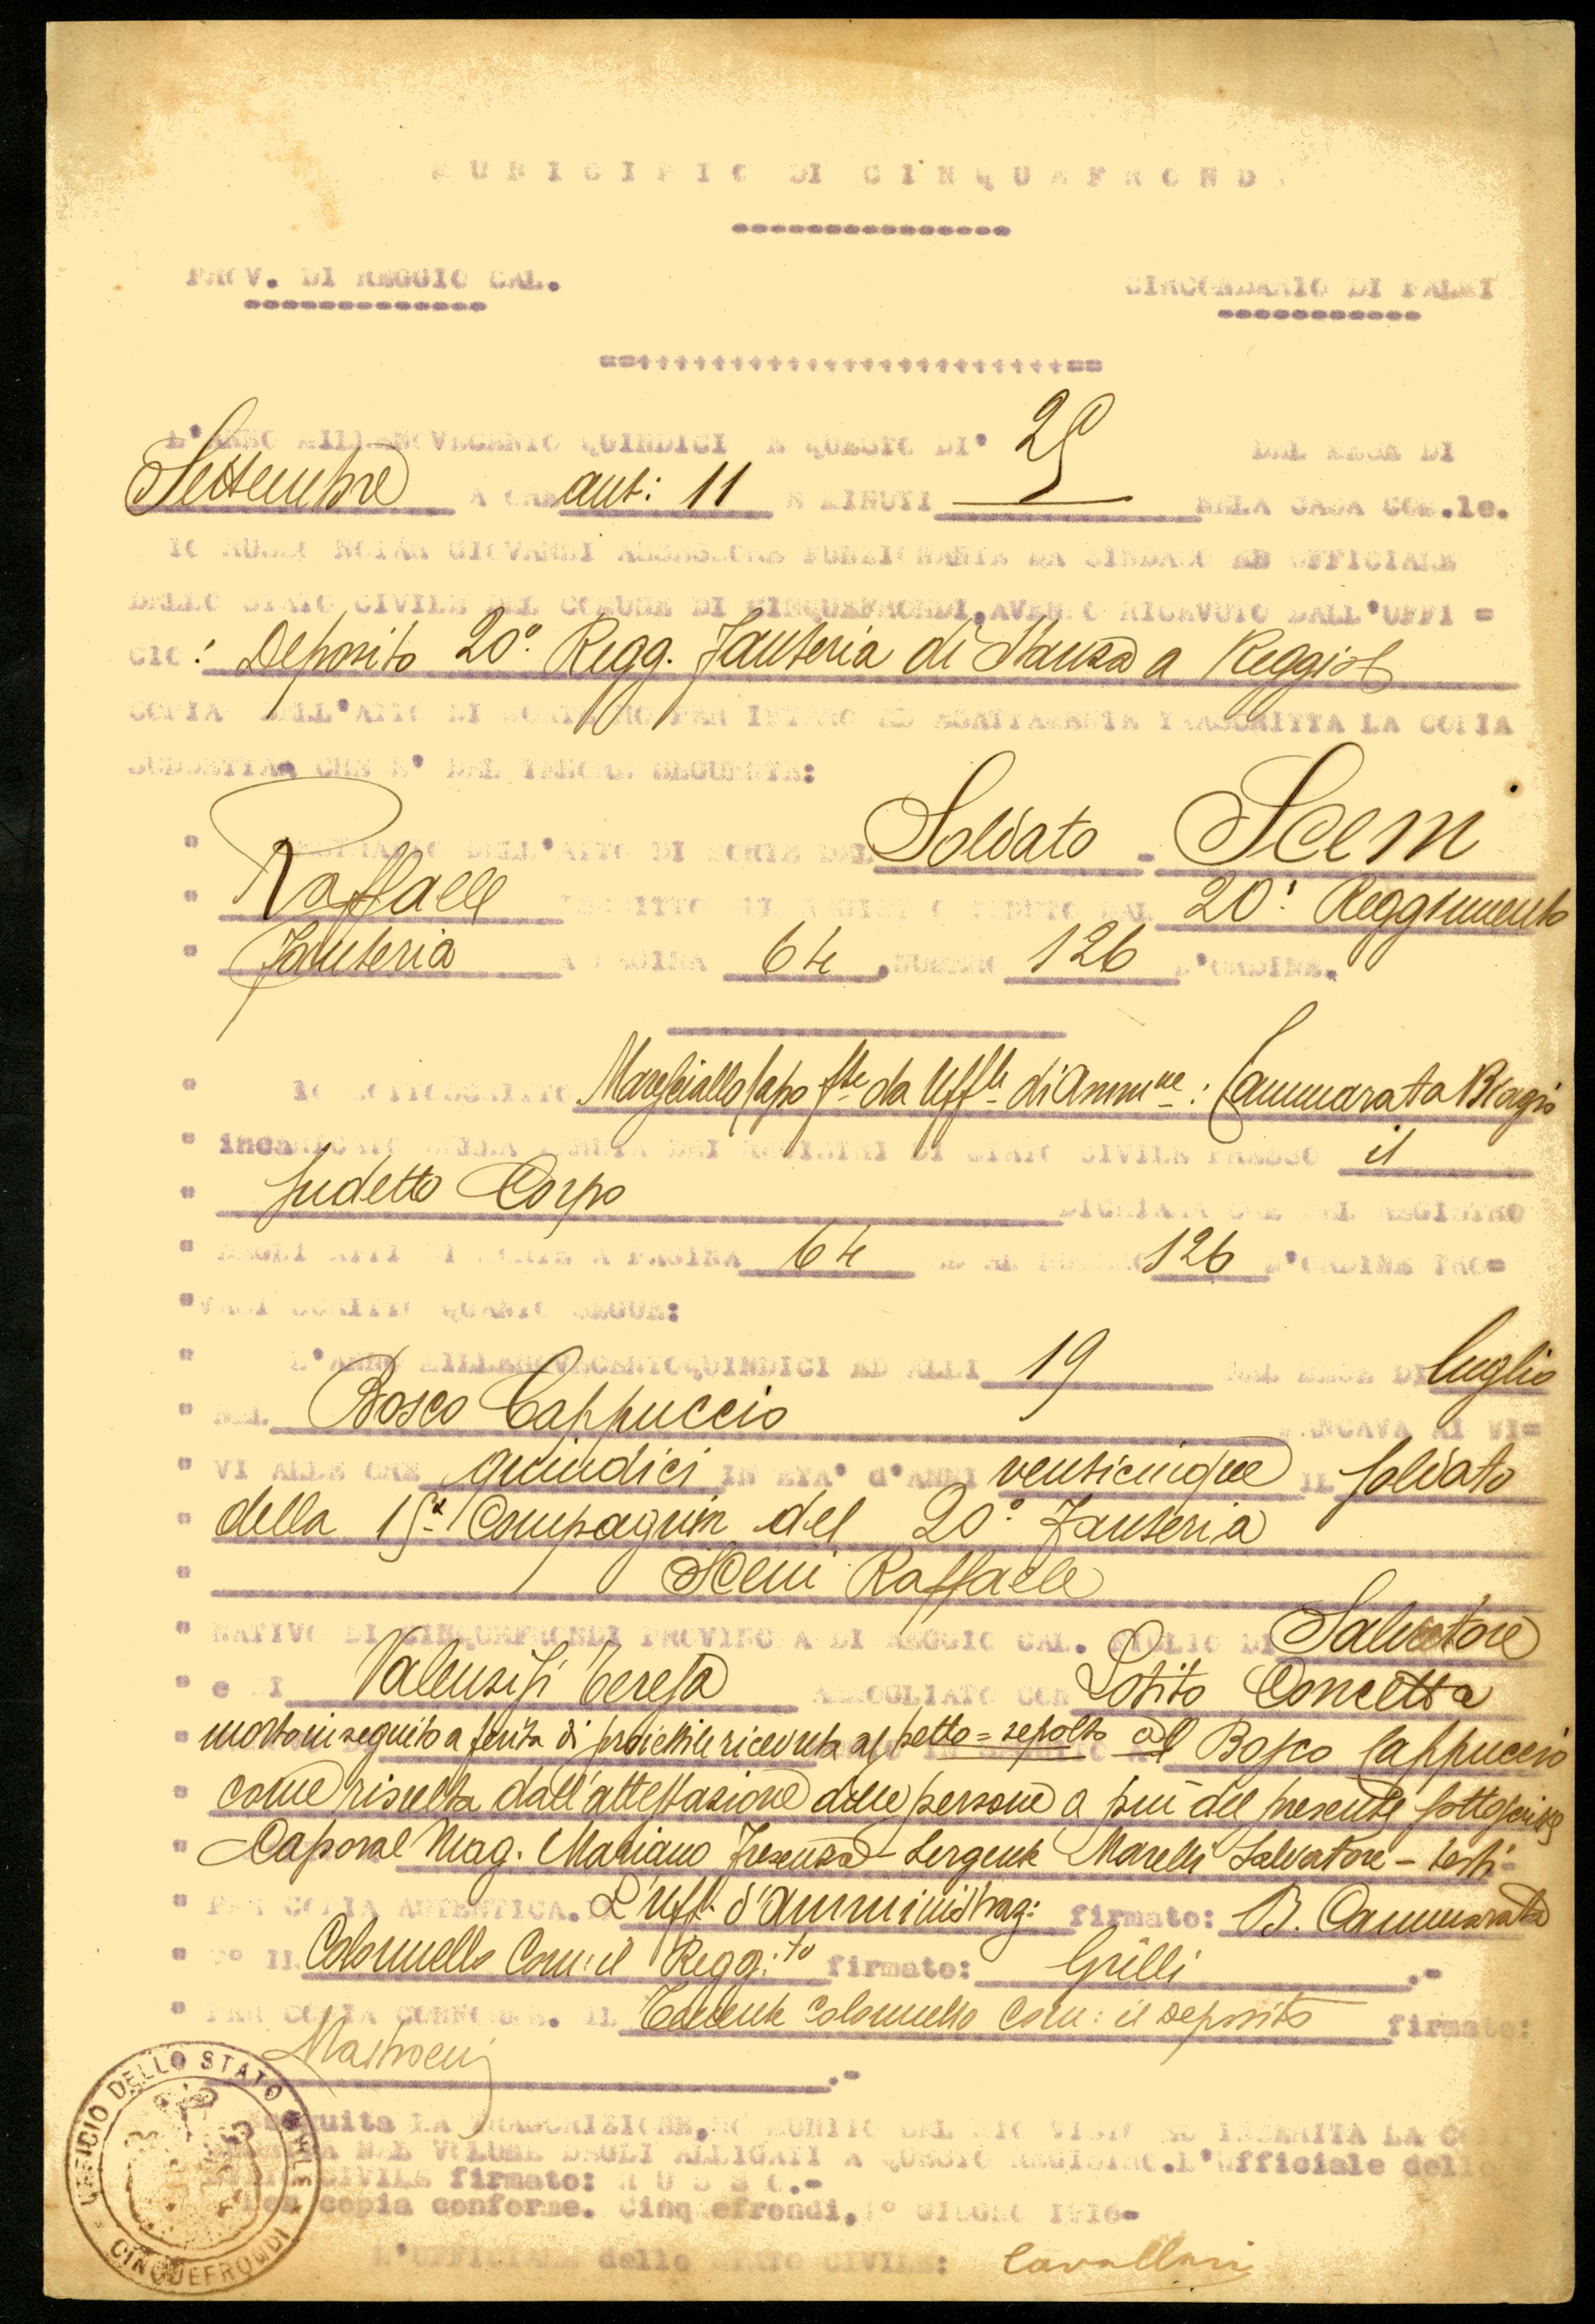 MUNICIPIO DI CINQUEFRONDI
PROV. DI REGGIO CAL.
CIRCONDARIO DI PALMI
L'ANNO MILLENOVECENTO QUINDICI E QUESTO DI' 25 DEL MESE DI
Settembre A ORE ant: 11 E MINUTI NELA CASA COM.le.
IO RUSSO NOTAR GIOVANNI ASSESSORE FUNZIONANTE DA SINDACO ED UFFICIALE
DELLO STATO CIVILE DEL COMUNE DI CINQUEFRONDI, AVENDO RICEVUTO DALL'UFFI =
CIO: Deposito 20° Regg. Fanteria di Stanza a Reggio
COPIA DELL'ATTO DI MORTE HO PER INTERO ED ESATTAMENTE TRASCRITTA LA COPIA
SUDDETTA CHE E' DEL TENORE SEGUENTE:
" DELL'ATTO DI MORTE DEL Soldato - Sceni
" Raffaele ISCRITTO SUL REGISTRO TENUTO DAL 20° Reggimento
" Fanteria A PAGINA 64, NUMERO 126 D'ORDINE.
" IO SOTTOSCRITTO Maresciallo Capo fte da Uffle di Ammne: Cammarata Biagio
" incaRICATO DELLA TENUTA DEI REGISTRI DI STATO CIVILE PRESSO il
" sudetto Corpo DICHIARA CHE NEL REGISTRO
" DEGLI ATTI DI MORTE A PAGINA 64 ED AL NUMERO 126 D'ORDINE TRO=
" VASI SCRITTO QUANTO SEGUE:
" L'ANNO MILLENOVECENTOQUINDICI ED ALLI 19 DEL MESE DI luglio
" NEL Bosco Cappuccio MANCAVA AI VI=
" VI ALLE ORE quindici IN ETA' d'ANNI venticinque IL soldato
" della 15a Compagnia del 20° Fanteria
" Sceni Raffaele
" NATIVO DI CINQUEFRONDI PROVINCIA DI REGGIO CAL. FIGLIO DI Salvatore
" e DI Valensisi Teresa AMMOGLIATO CON Lotito Concetta
" morto in seguito a ferita di proiettile ricevuta al petto = sepolto al Bosco Cappuccio
" come risulta dall'attestazione delle persone a piu del presente sottoscritte
" Caporal Mag. Mariano Fresenza - Sergente Marelli Salvatore - testi
" PER COPIA AUTENTICA. L'uff. d'amministraz: firmato: B. Cammarata
" V° IL Colonnello Com: il Regg:to firmato: Grilli .-
" PER COPIA CONFORME. IL Tenente Colonnello Com: il Deposito firmato:
Mastroeni .-
Eseguita LA TRASCRIZIONE, HO MUNITO DEL MIO VISTO ED INSERITA LA
NEL VOLUME DEGLI ALLIGATI A QUESTO REGISTRO. L'Ufficiale dello
CIVILE firmato: RUSSO.-
Per copia conforme. Cinquefrondi, 1° GIUGNO 1916-
L'UFFICIALE dello STATO CIVILE: Cavallari
UFFICIO DELLO STATO CIVILE
CINQUEFRONDI